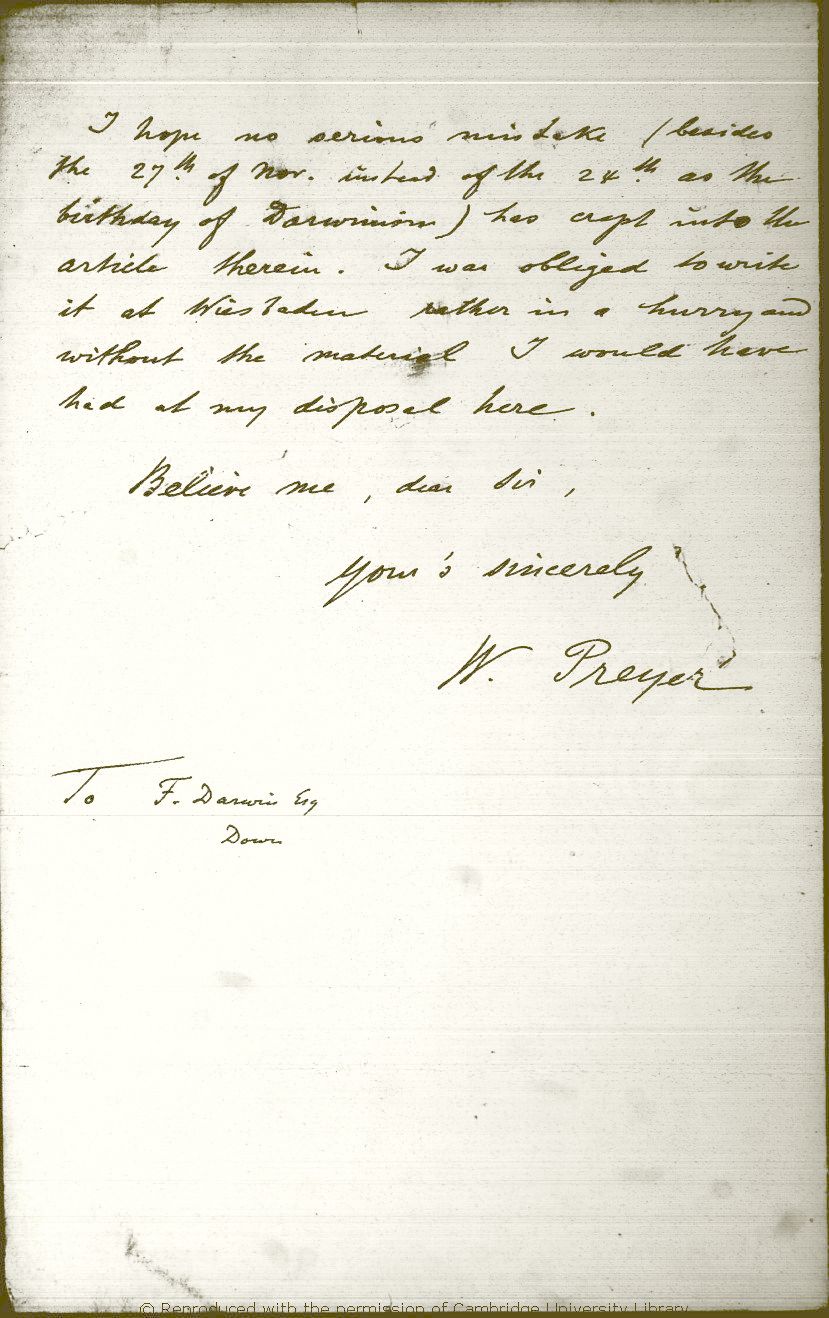 I hope no serious mistake (besides
the 27th of Nov. instead of the 24th as the
birthday of Darwinism) has crept into the
article therein. I was obliged to write
it at Wiesbaden rather in a hurry and
without the material I would have
had at my disposal here.
Believe me, dear Sir,
Your's sincerely
W. Preyer
To F. Darwin Esq
Down
© Reproduced with the permission of Cambridge University Library